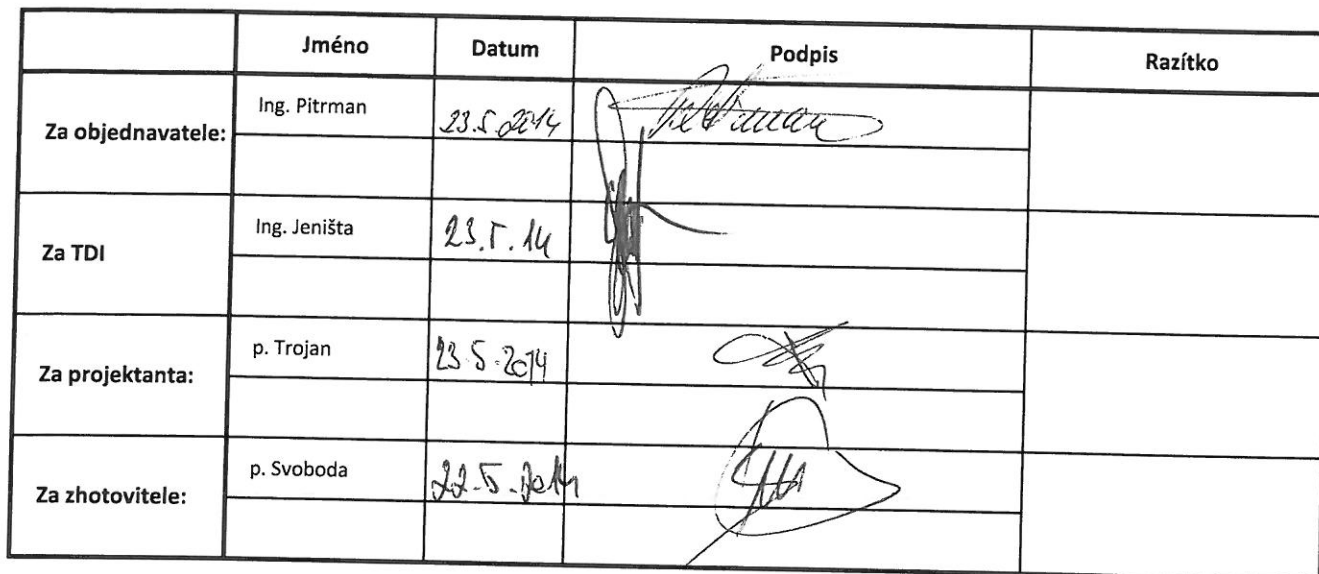 Jméno Datum Podpis Razítko
Za objednavatele: Ing. Pitrman 23.5.2014
Za TDI Ing. Jeništa 23.5.14
Za projektanta: p. Trojan 23.5.2014
Za zhotovitele: p. Svoboda 22.5.2014